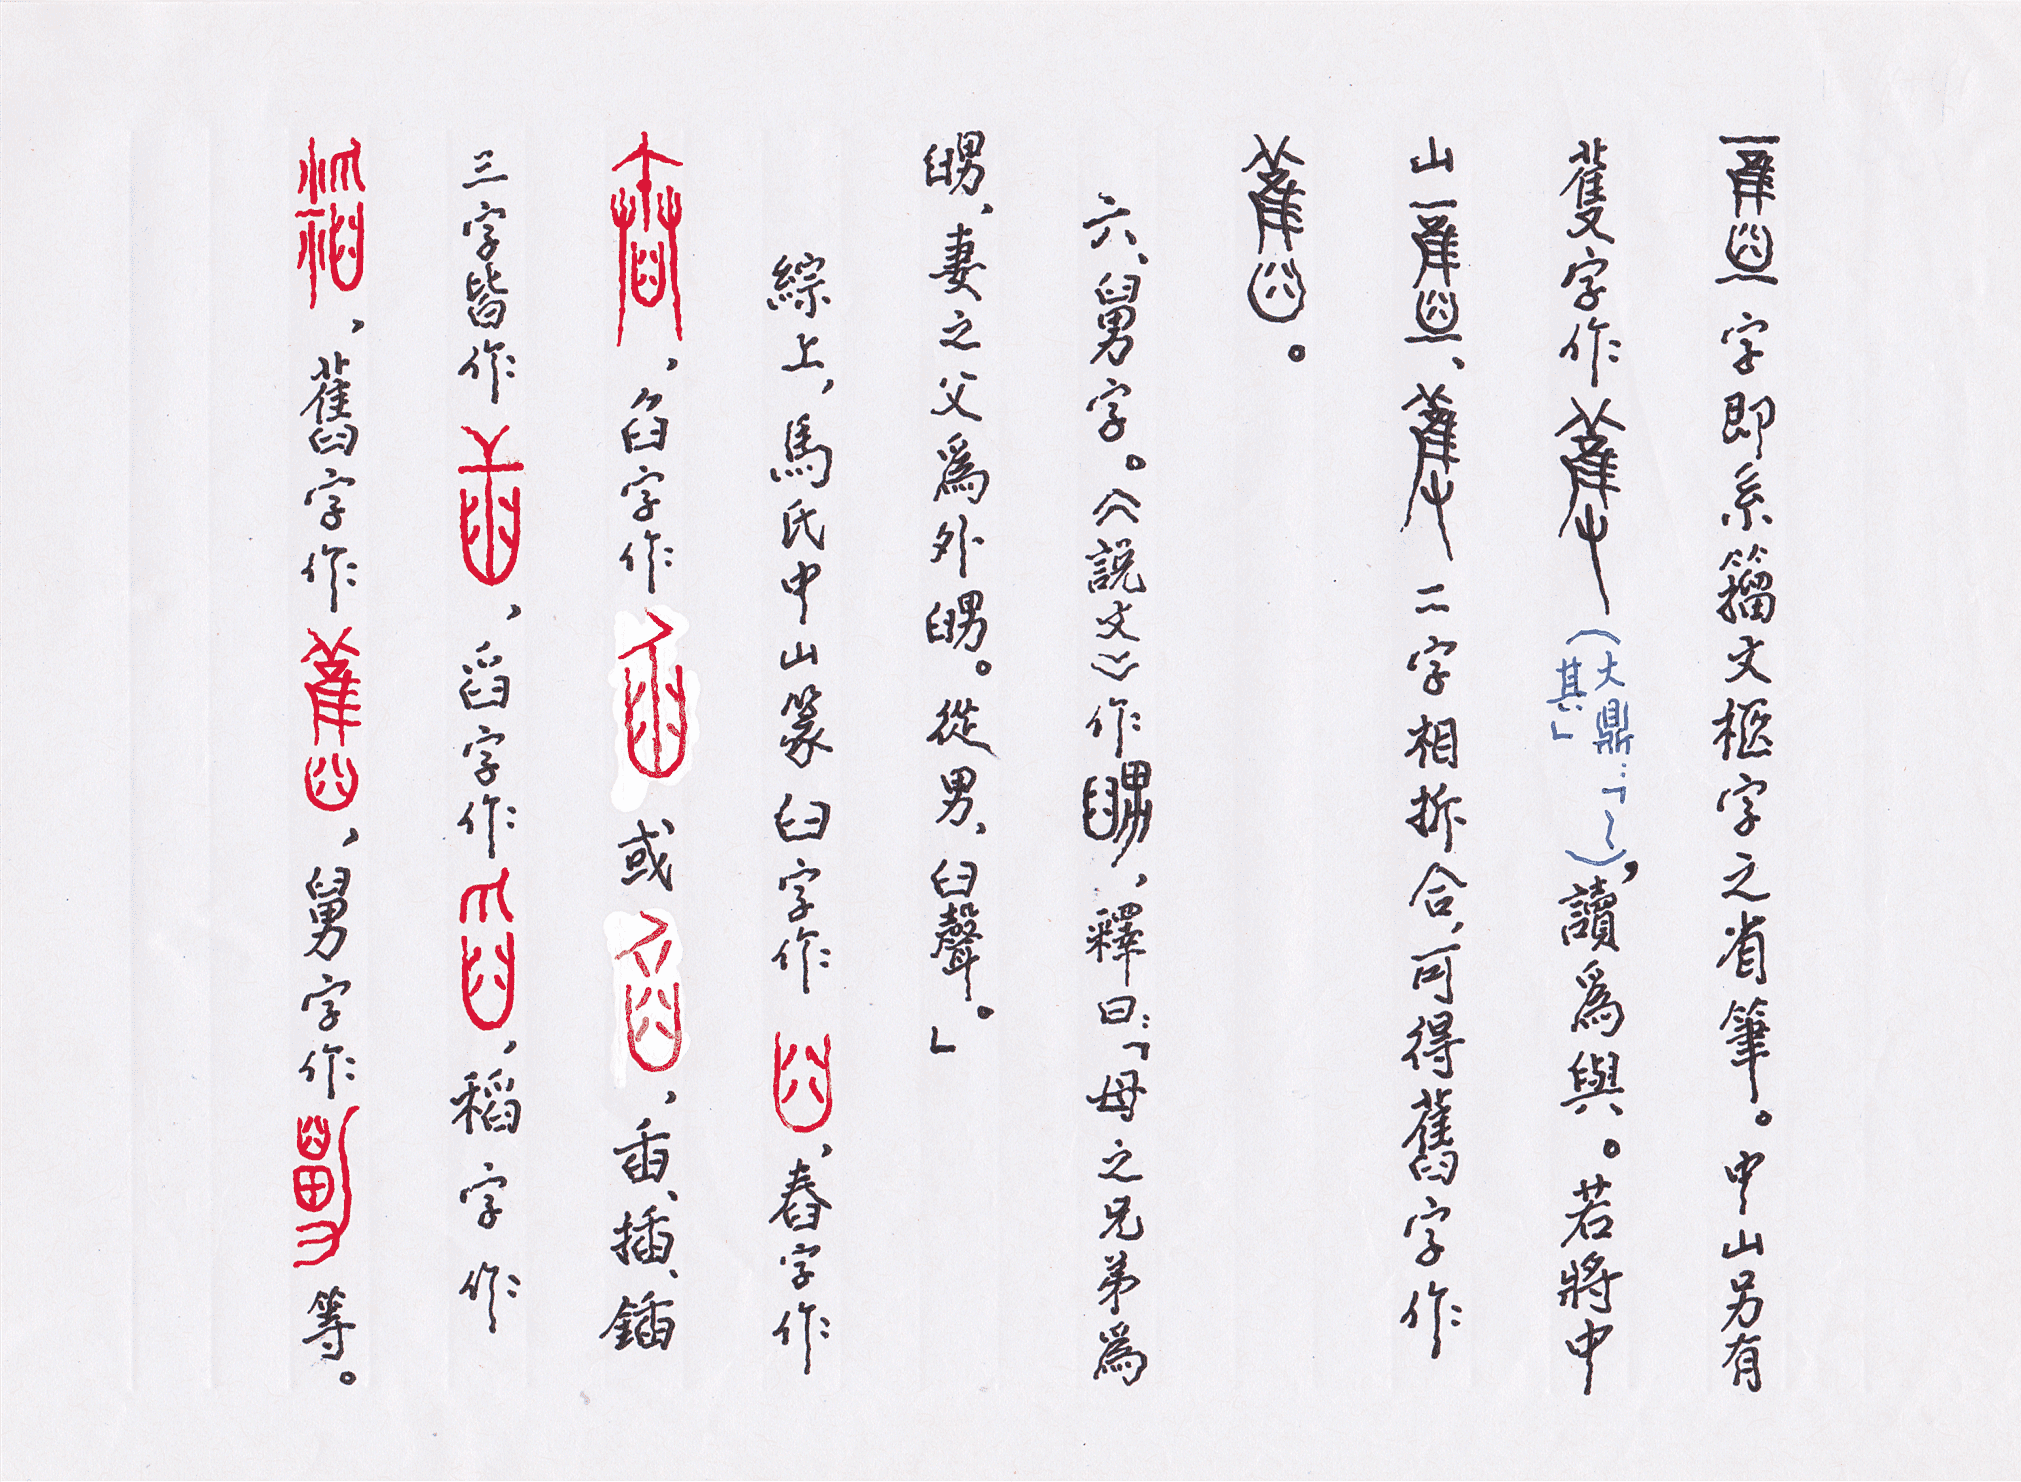 字即系籀文柩字之省筆。中山另有
蒦字作（大鼎：「～其」），讀爲與。若將中
山、二字相拆合，可得舊字作
。
六、舅字。《說文》作，釋曰：「母之兄弟爲
舅，妻之父爲外舅。從男，臼聲。」
綜上，馬氏中山篆臼字作，舂字作
，臽字作或，臿、插、鍤
三字皆作，舀字作，稻字作
，舊字作，舅字作等。